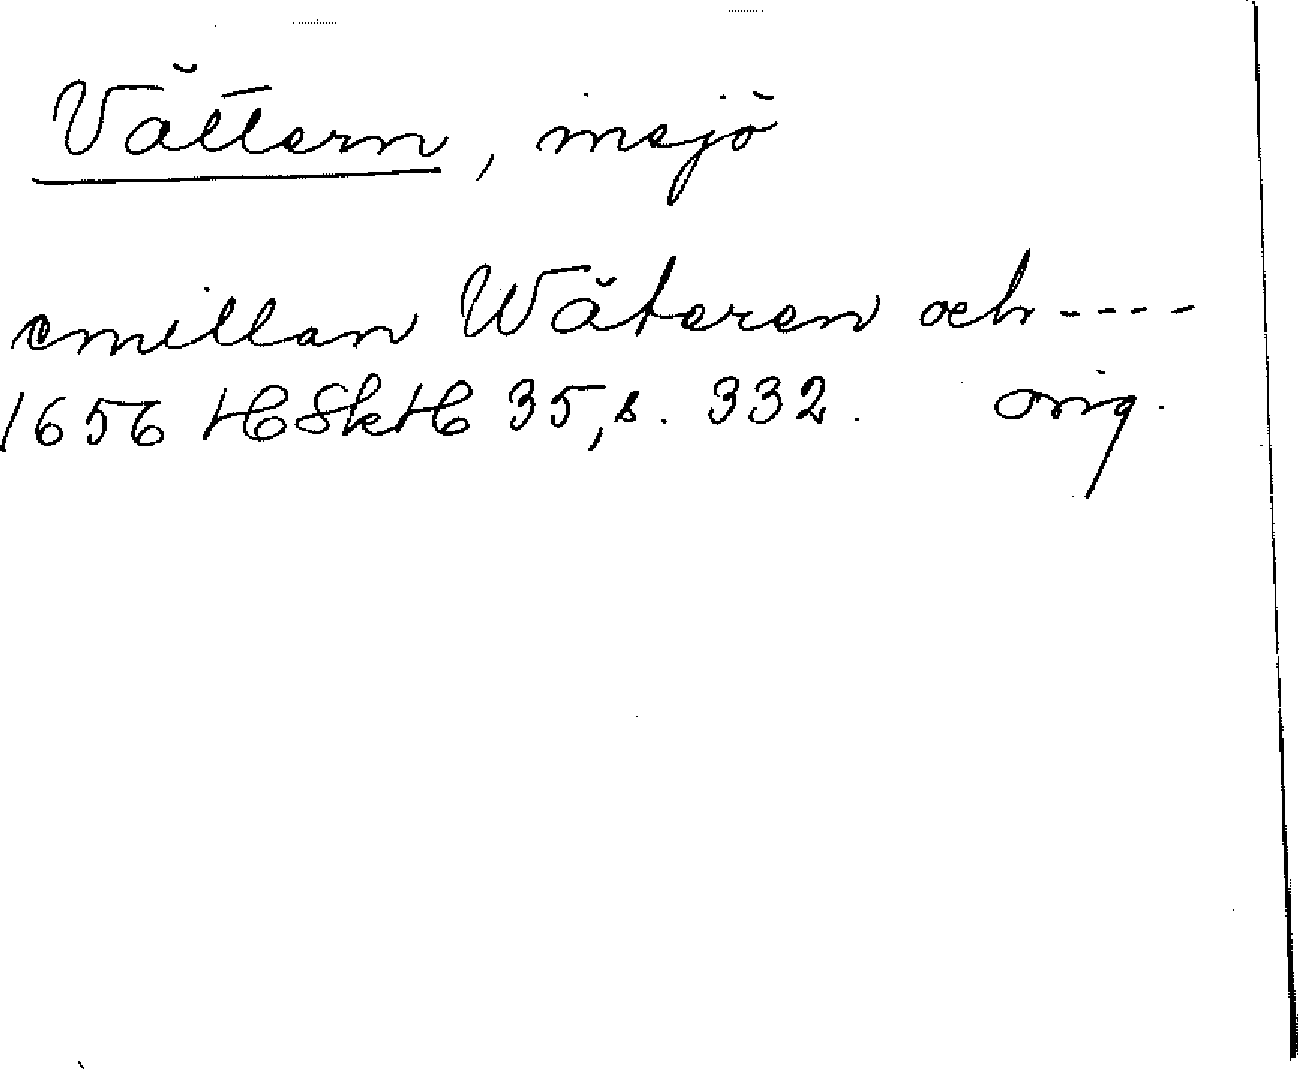 Vättern, insjö
emillan Wäteren och ----
1656 HSkH 35, s. 332. orig.